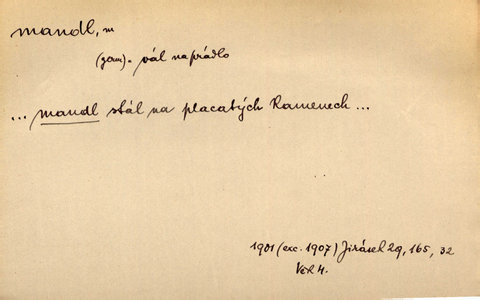 mandl, m
vál na prádlo
... mandl stál na placatých kamenech ...
1901 (exc. 1907) Jirásek 29, 165, 32